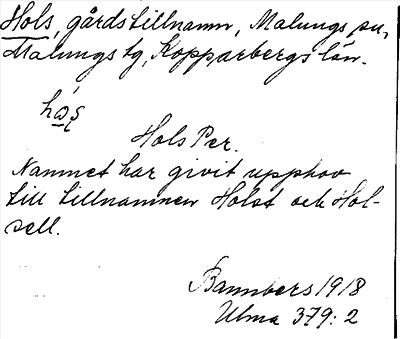 Hols, gårdstillnamn, Malungs sn,
Malungs tg, Kopparbergs län.
Hols Per.
Namnet har givit upphov
till tillnamnen Holst och Hol-
sell.
Bannbers 1918
Ulma 379:2